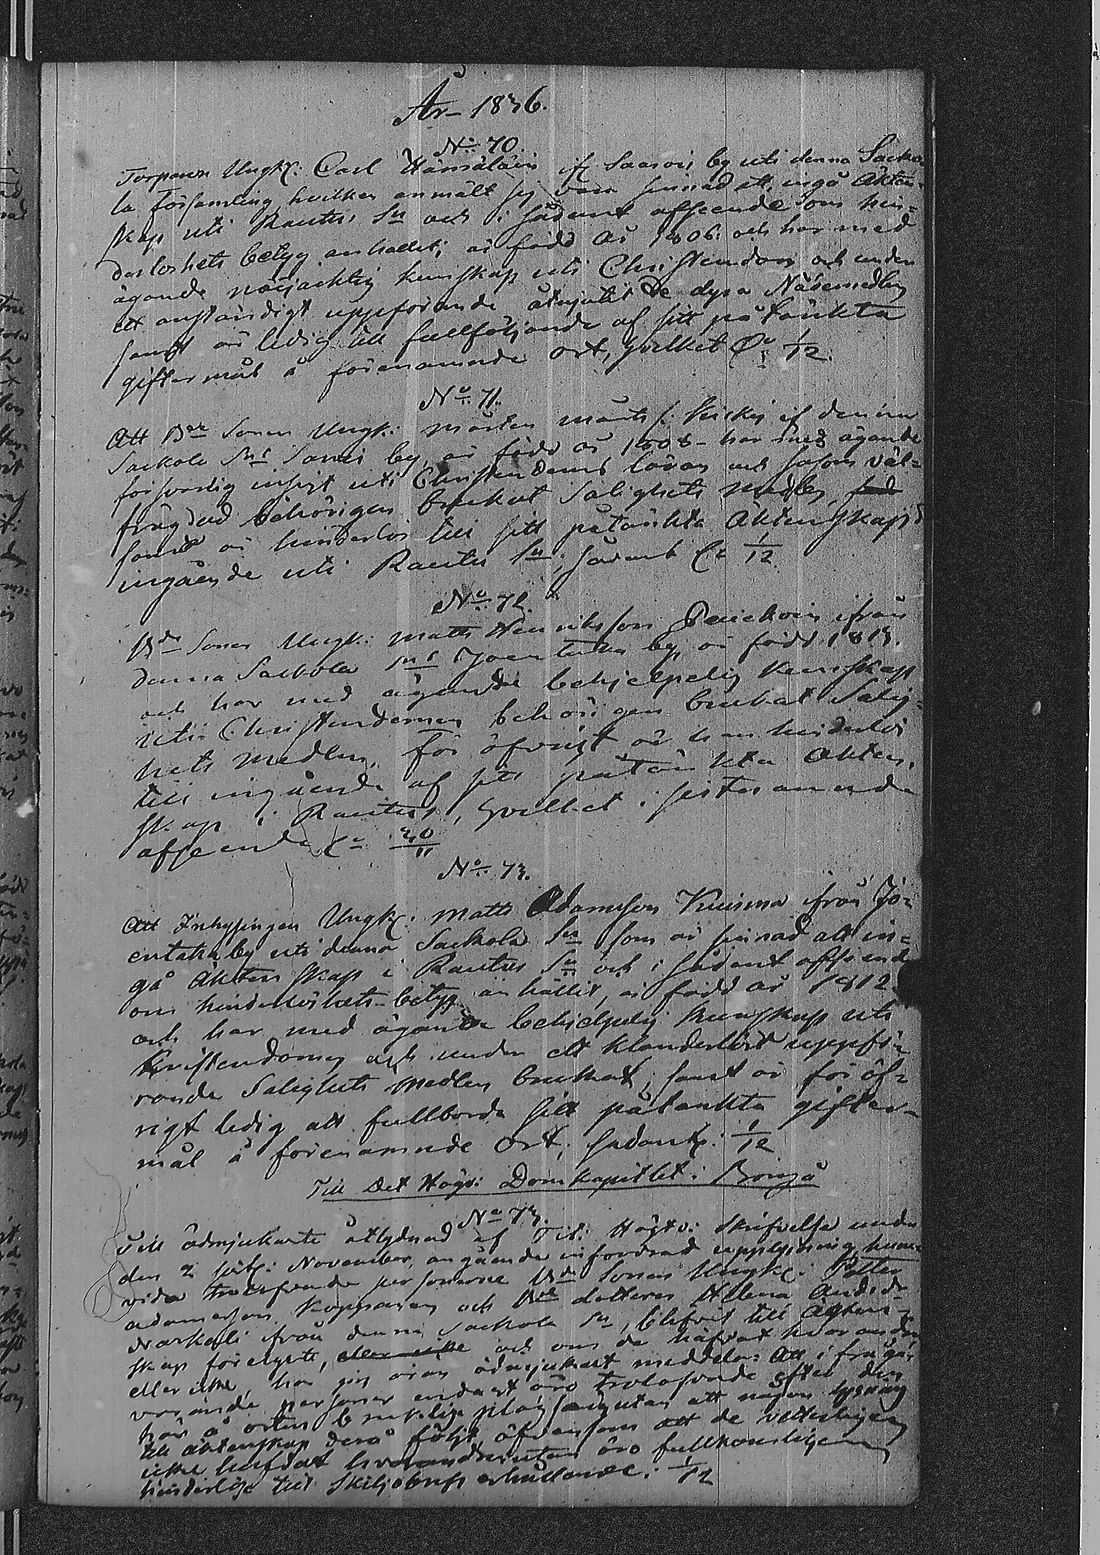 År 1836.
No 70.
Torparen Ungk: Carl Hämäläin if Saarois by uti denna Sacko-
la församling hvilken anmält sig vara sinnad att ingå Äkten-
skap uti Rautus Sn och i sådant afseende om hin-
derlöshets betyg anhållit; är född År 1806 och har med
ägande nöjacktig kunskap uti Christendom och under
ett anständigt uppförande åtnjutit De dyra Nådemedlen
samt är ledig till fullföljande af sitt påtänkta
giftermål å förenämnde ort, hvilket 1/12.
No 71.
Att Bde Sonen Ungk: Mårten Mårts s: Kiiski if denna
Sackola Sns by är född år 1808 - har med ägande
försvarlig insigt uti Christendoms läran och såsom väl-
frägdad behörigen brukat Salighets medlen,
samt är hinderlös till sitt påtänkta Äktenskaps
ingående uti Rautus Sn, sådant 1/12
No 72.
Bde Sonen Ungk: Matts Henriksson ifrån
denna Sackola Sns Joentaka by, är född 1813.
och har med ägande behjelpelig kunskap
uti Christendomen behörigen brukat Salig-
hets medlen. För öfrigt är han hinderlös
till ingående af sitt påtänkta Äkten-
skap i Rautus, hvilket i sistnämnde
afseende 30/11
No 73.
Att Inhysingen Ungk: Matts Adamsson Kuisma från Jo-
entaka by uti denna Sackola Sn som är sinnad att in-
gå Äktenskap i Rautus Sn och i sådant afseende
om hinderlöshets-betyg anhållit, är född år 1812
och har med ägande behjelpelig kunskap uti
Kristendomen och under ett klanderlöst uppfö-
rande Salighets medlen brukat, samt är för öf-
rigt ledig att fullborda sitt påtänkta gifter-
mål å förenämnde ort, sådant 1/12
Till Det Högv: Domkapitlet i Borgå
No 73.
Till ödmjukaste åtlydnad af Högtv: skrifvelse under
den 2 sistl: November, angående infordrad upplysning huru-
vida personerne Bde Sonen Ungk: Petter
Adamsson Kopponen och Bde dottren Helena Andsdr
från denna Sackola Sn, blifvit till Äkten-
skap förelyste, eller icke och om de häfdat hvarandra
eller icke, har jag äran ödmjukast meddela: Att i fråga
varande personer endast äro trolofvade efter den
här å orten brukliga plägsed utan att någon lysning
till äktenskap derå följt äfvensom att de
icke häfdat hvarandra utan äro fullkomligen
hinderlöse till Skiljobrefs erhållande. 1/12